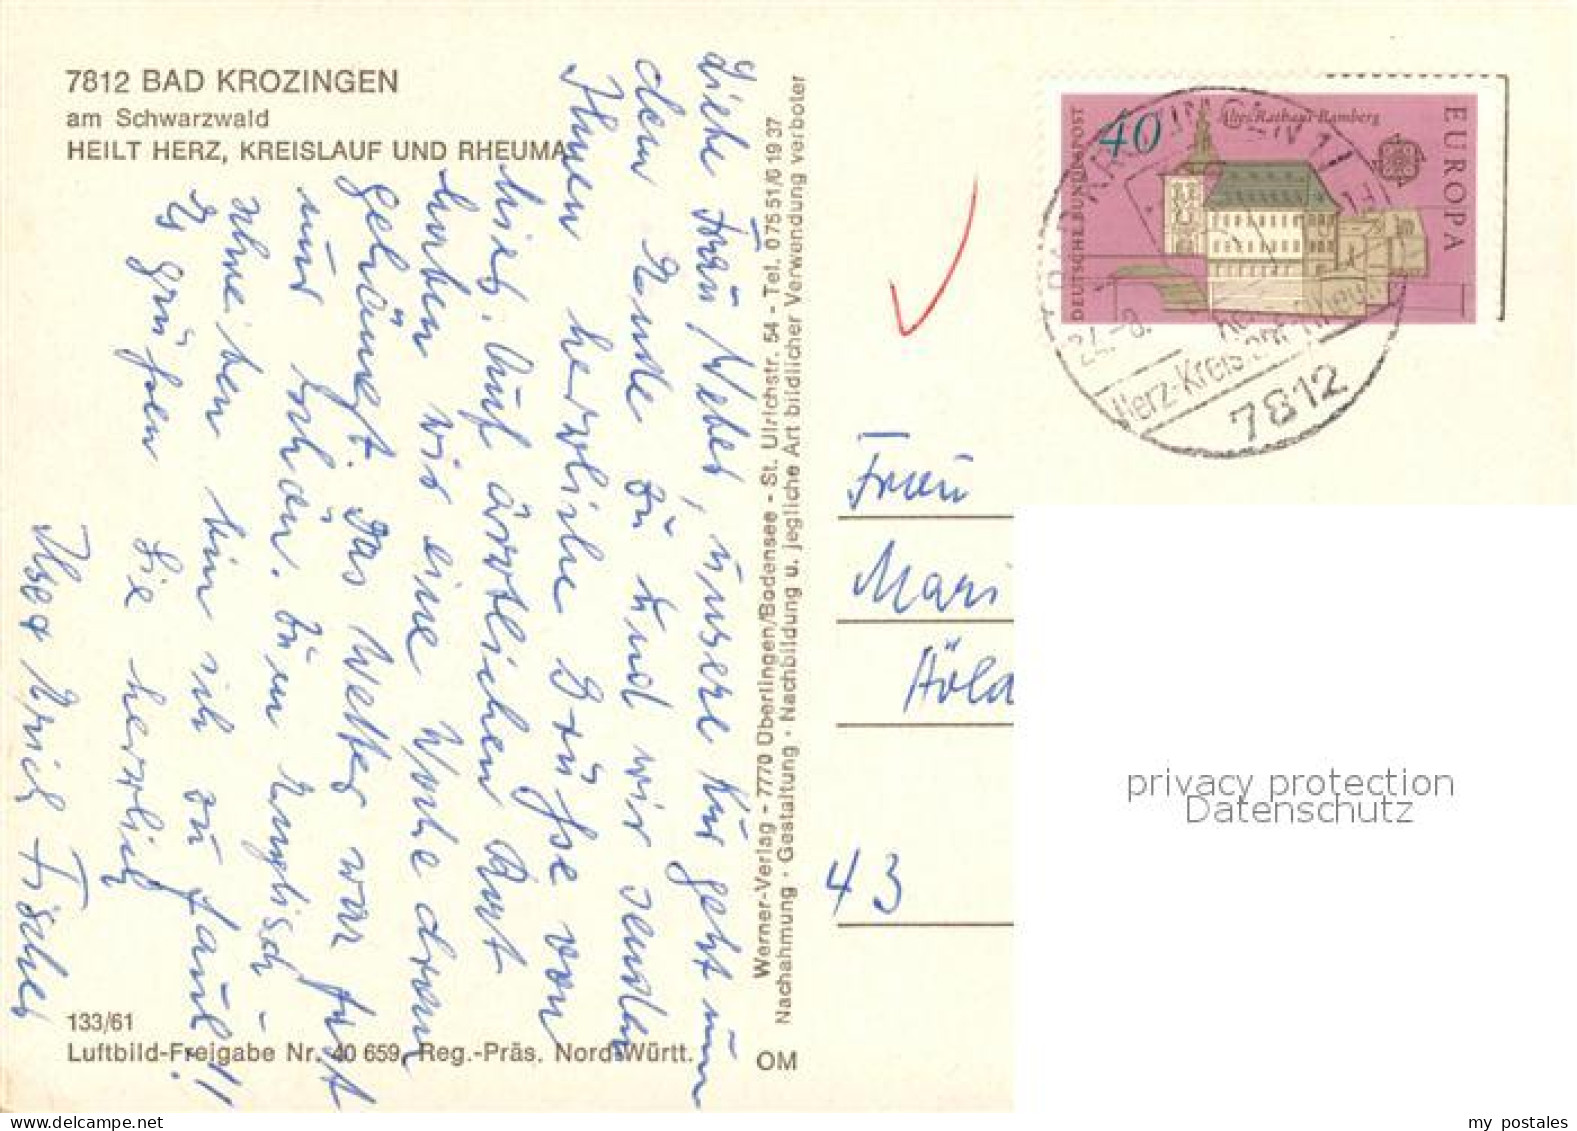 7812 BAD KROZINGEN
am Schwarzwald
HEILT HERZ, KREISLAUF UND RHEUMA
Liebe Frau Weber, unsere Kur geht nun
dem Ende zu und wir senden
Ihnen herzliche Grüße von
hier. Auf ärztlichen Rat
haben wir eine Woche dran
gehängt. Das Wetter war fast
nur schön. Zum Englisch-
schreiben bin ich zu faul!!
Es grüßen Sie herzlich
Ihre Fischer
133/61
Luftbild-Freigabe Nr. 40 659, Reg.-Präs. Nord-Württ.
Werner-Verlag - 7770 Überlingen/Bodensee - St. Ulrichstr. 54 - Tel. 07551/61937
Nachahmung · Gestaltung · Nachbildung u. jegliche Art bildlicher Verwendung verboten
OM
DEUTSCHE BUNDESPOST
40
Altes Rathaus Bamberg
EUROPA
24.-8.
Herz-Kreislauf-Rheuma
7812
Frau
Mari
43
privacy protection
Datenschutz
delcampe.net
my_postales